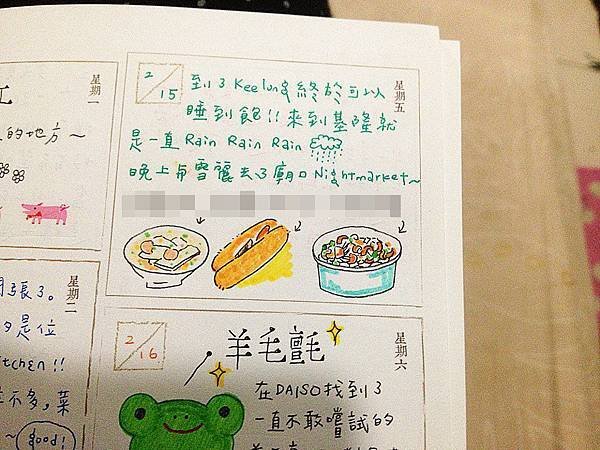 星期一
的地方~
2/15
星期五
到了Keelung終於可以
睡到飽!! 來到基隆就
是一直Rain Rain Rain
晚上与雪麗去了廟口Nightmarket~
星期二
張了。
是位
tchen!!
不多,菜
~
good!
2/16
星期六
羊毛氈
在DAISO找到了
一直不敢嚐試的